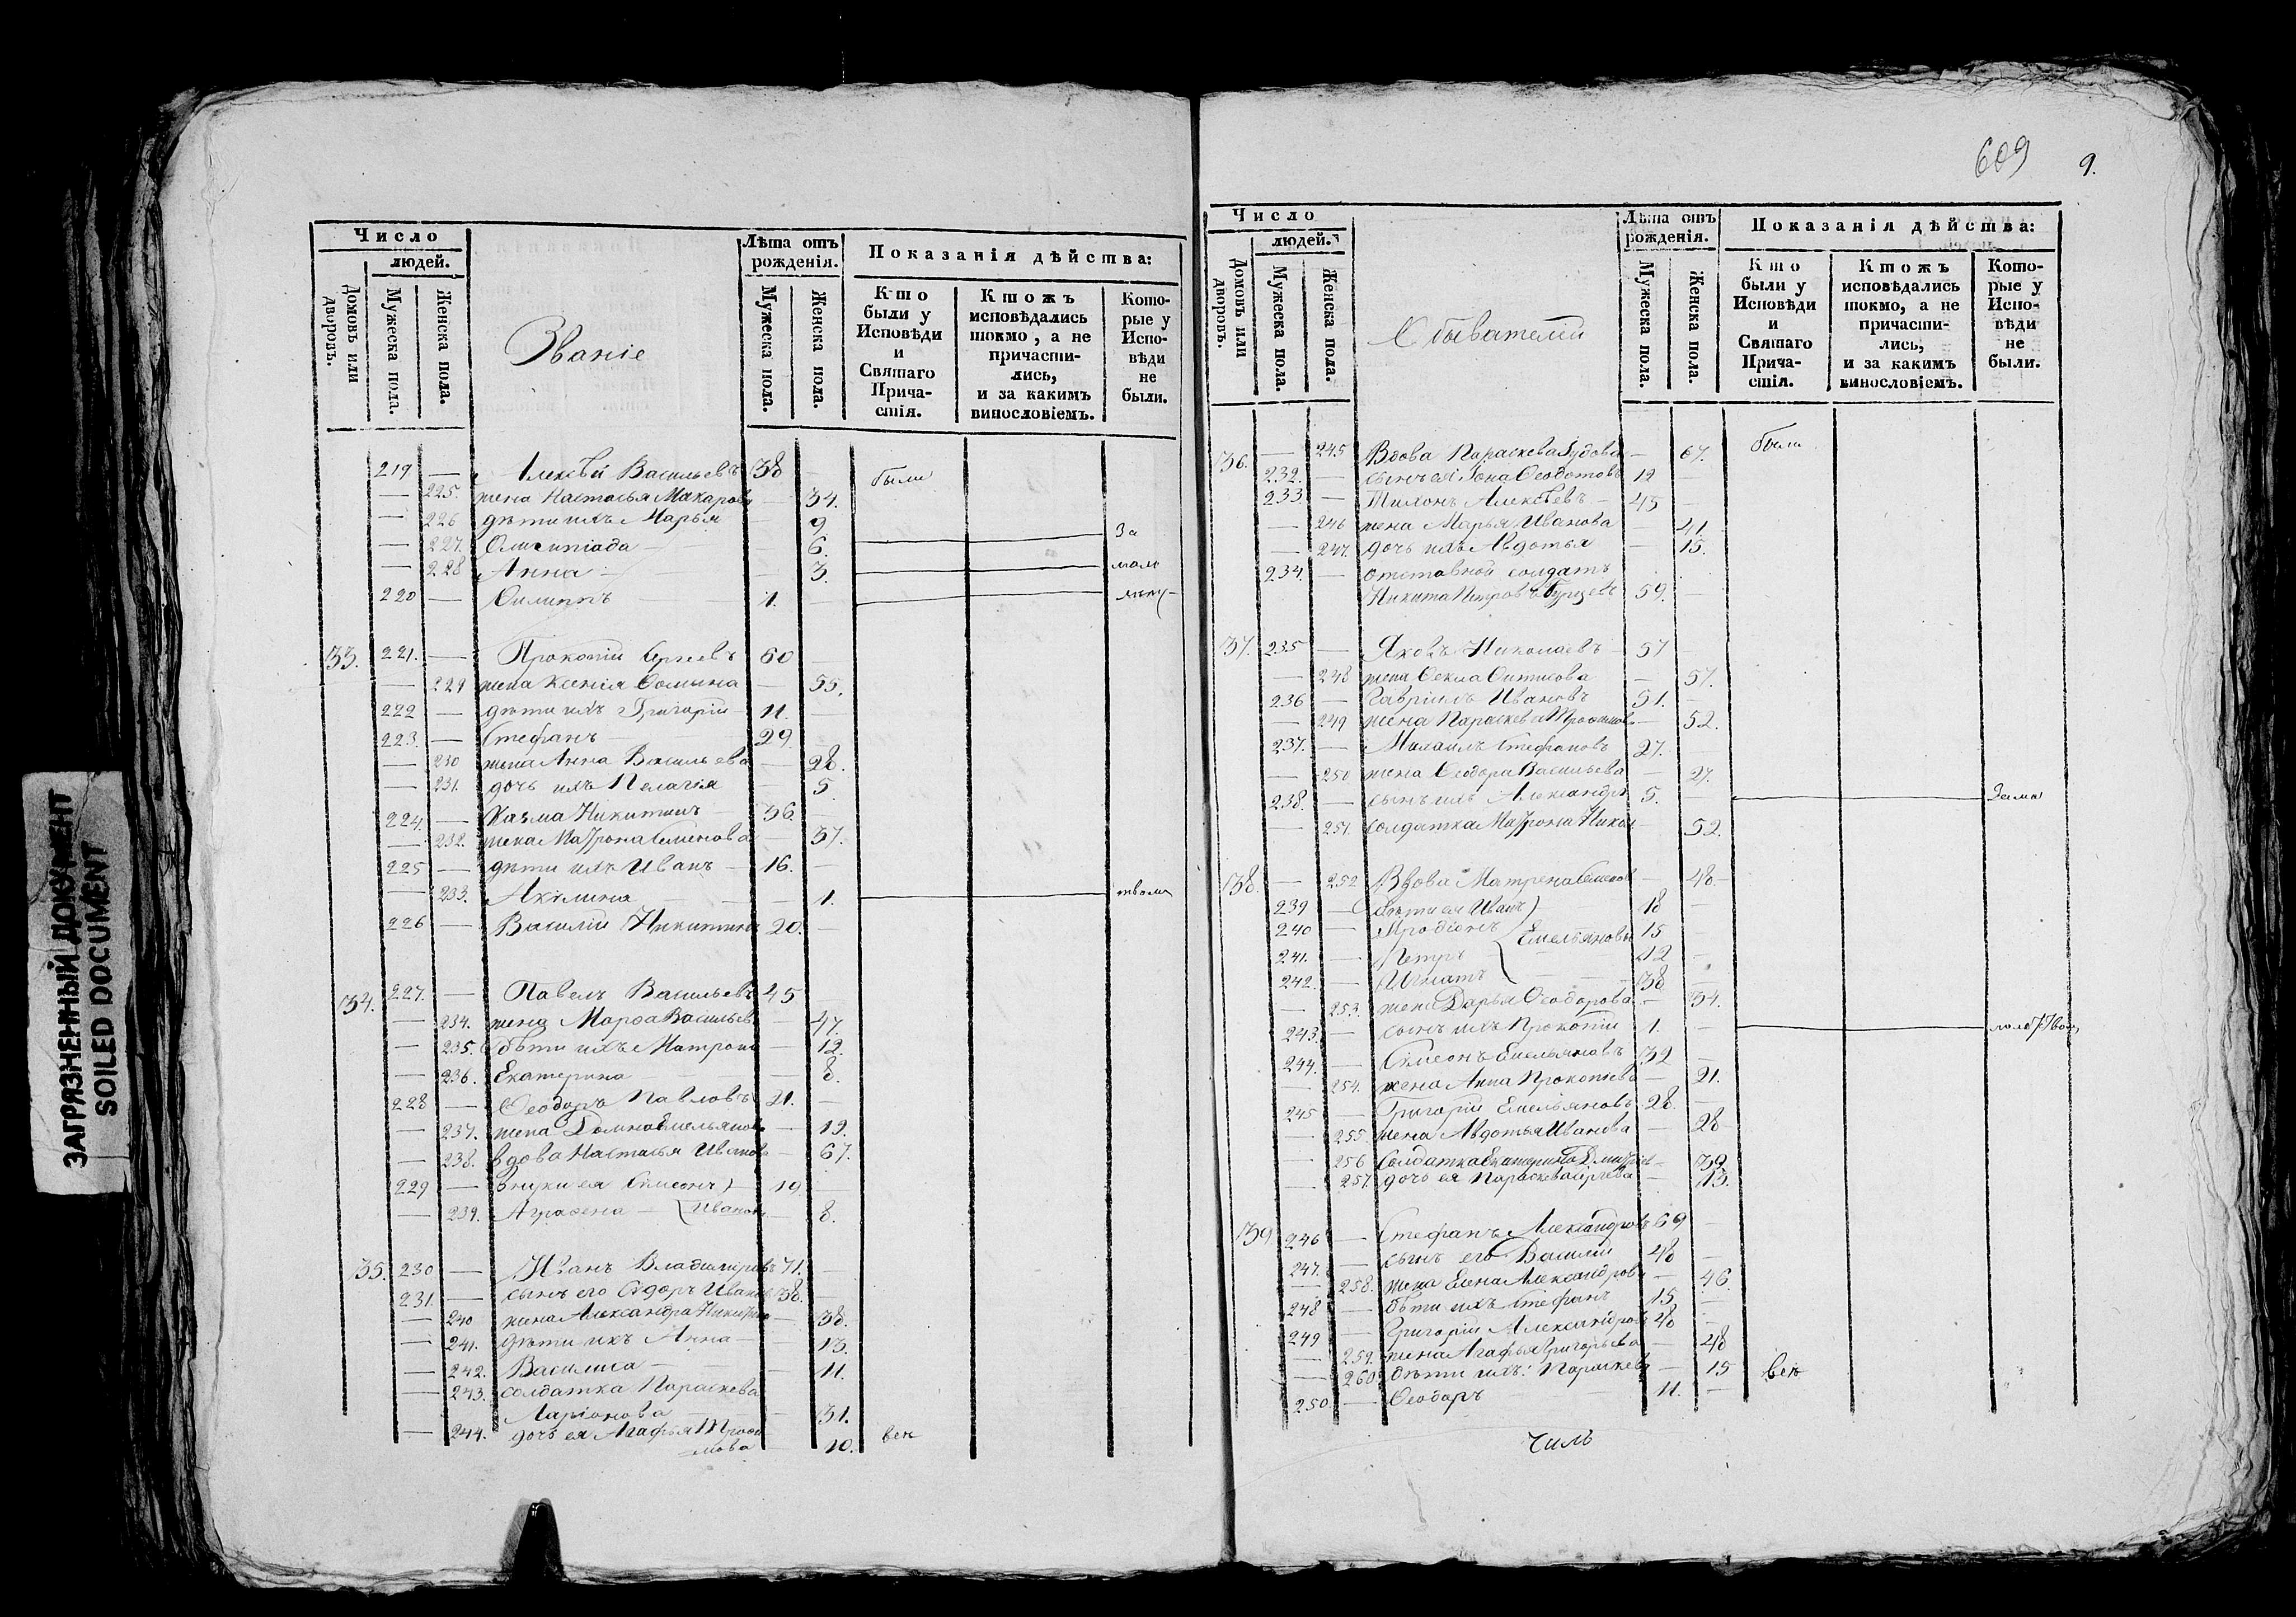 ЗАГРЯЗНЕННЫЙ ДОКУМЕНТ
SOILED DOCUMENT
Число
людей.
Домовъ или дворовъ.
Мужеска пола.
Женска пола.
Званіе
Лѣта отъ рожденія.
Мужеска пола.
Женска пола.
Показанія дѣйства:
Кто были у Исповѣди и Святаго Причастія.
Ктожъ исповѣдались токмо, а не причастились, и за какимъ винословіемъ.
Которые у Исповѣди не были.
219 — Алексѣй Васильевъ 38 — были
— 225. жена Настасья Макарова — 34.
— 226 дѣти ихъ Марья — 9
— 227. Олимпіада — 6. За
— 228 Анна — 3. мало
220 — Филиппъ 1. —
33. 221. — Прокопій 60 —
— 229 жена Ксенія Фомина — 55.
222 — дѣти ихъ Григорій 11. —
223. — Стефанъ 29 —
— 230 жена Анна Васильева — 28.
— 231. дочь ихъ Пелагія — 5
224. — Казма Никитинъ 36. —
— 232. жена Матрона Семенова — 37.
225 — дѣти ихъ Иванъ 16. —
— 233. Акилина — 1.
226 — Василій Никитинъ 20. —
34. 227. — Павелъ Васильевъ 45 —
— 234. жена Марѳа Васильев — 47.
— 235. дѣти ихъ Матрона — 12.
— 236. Екатерина — 8.
228 — Ѳеодоръ Павловъ 21. —
— 237. жена Домна Емельянов — 19.
— 238. вдова Настасья Иванов — 67.
229 — внуки ея Симеонъ 19 —
— 239. Аграфена — Иванов — 8.
35. 230 — Иванъ Владимировъ 71. —
231. — сынъ его Сидоръ Иванов 38. —
— 240 жена Александра Никит — 38.
— 241. дѣти ихъ Анна — 13.
— 242. Василиса — 11.
— 243. солдатка Параскева
Ларіонова — 31.
— 244. дочь ея Агафья Трофи
мова — 10. вси
609 9.
Число
людей.
Домовъ или дворовъ.
Мужеска пола.
Женска пола.
Обывателій
Лѣта отъ рожденія.
Мужеска пола.
Женска пола.
Показанія дѣйства:
Кто были у Исповѣди и Святаго Причастія.
Ктожъ исповѣдались токмо, а не причастились, и за какимъ винословіемъ.
Которые у Исповѣди не были.
36. — 245 Вдова Параскева — 67. были
232. — сынъ ея Іона Ѳеодотовъ 12 —
233. — Тихонъ Алексѣевъ 43 —
— 246 жена Марья Иванова — 41.
— 247. дочь ихъ Авдотья — 15.
234. — отставной солдатъ
Никита Петровъ 59. —
37. 235 — Яковъ Николаевъ 57
— 248 жена Ѳекла — 57.
236 — Гавріилъ Ивановъ 51. —
— 249 жена Параскева Трофимов — 52.
237. — Михаилъ Стефановъ 27. —
— 250 жена Ѳеодора Васильева — 27.
238. — сынъ ихъ Александръ 5. —
— 251. солдатка Матрона Никол 52.
38. — 252 Вдова Матрена Семенов — 48.
239 — дѣти ея Иванъ 18 —
240 — Иродіонъ Емельяновы 15 —
241. — Петръ 12 —
242. — Игнатъ 38 —
— 253. жена Дарья Ѳеодорова — 34.
243. — сынъ ихъ Прокопій 1. —
244. — Симеонъ Емельяновъ 32 —
— 254. жена Анна Прокопіева — 21.
245 — Григорій Емельяновъ 28. —
— 255. жена Авдотья Иванова — 28
— 256 солдатка Екатерина Дмитріев — 39
— 257. дочь ея Параскева — 13.
39 246 — Стефанъ Александровъ 69 —
247. — сынъ его Василій 48 —
— 258. жена Елена Александрова — 46.
248 — дѣти ихъ Стефанъ 15 —
249 — Григорій Александров 48 —
— 259. жена Агафья Григорьева — 48
— 260 дѣти ихъ: Параскева — 15 вси
250 — Ѳеодоръ 11. —